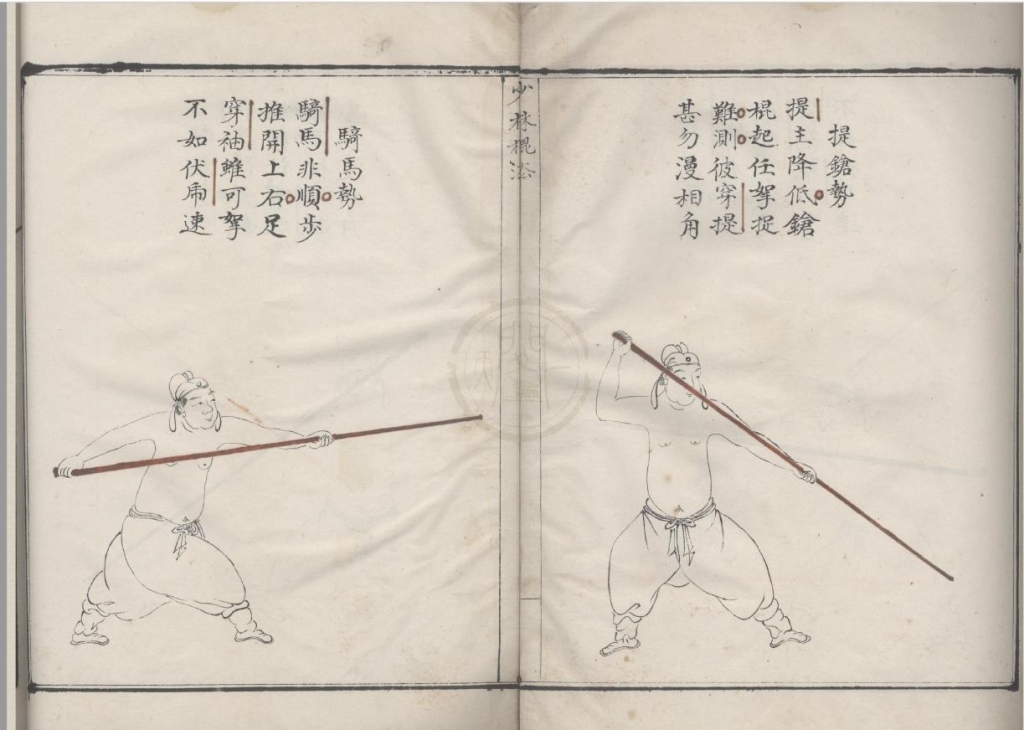 提鎗勢
提主降低鎗
棍起任拏捉
難測彼穿提
甚勿漫相角
少林棍法
騎馬勢
騎馬非順步
推開上右足
穿袖雖可拏
不如伏虎速